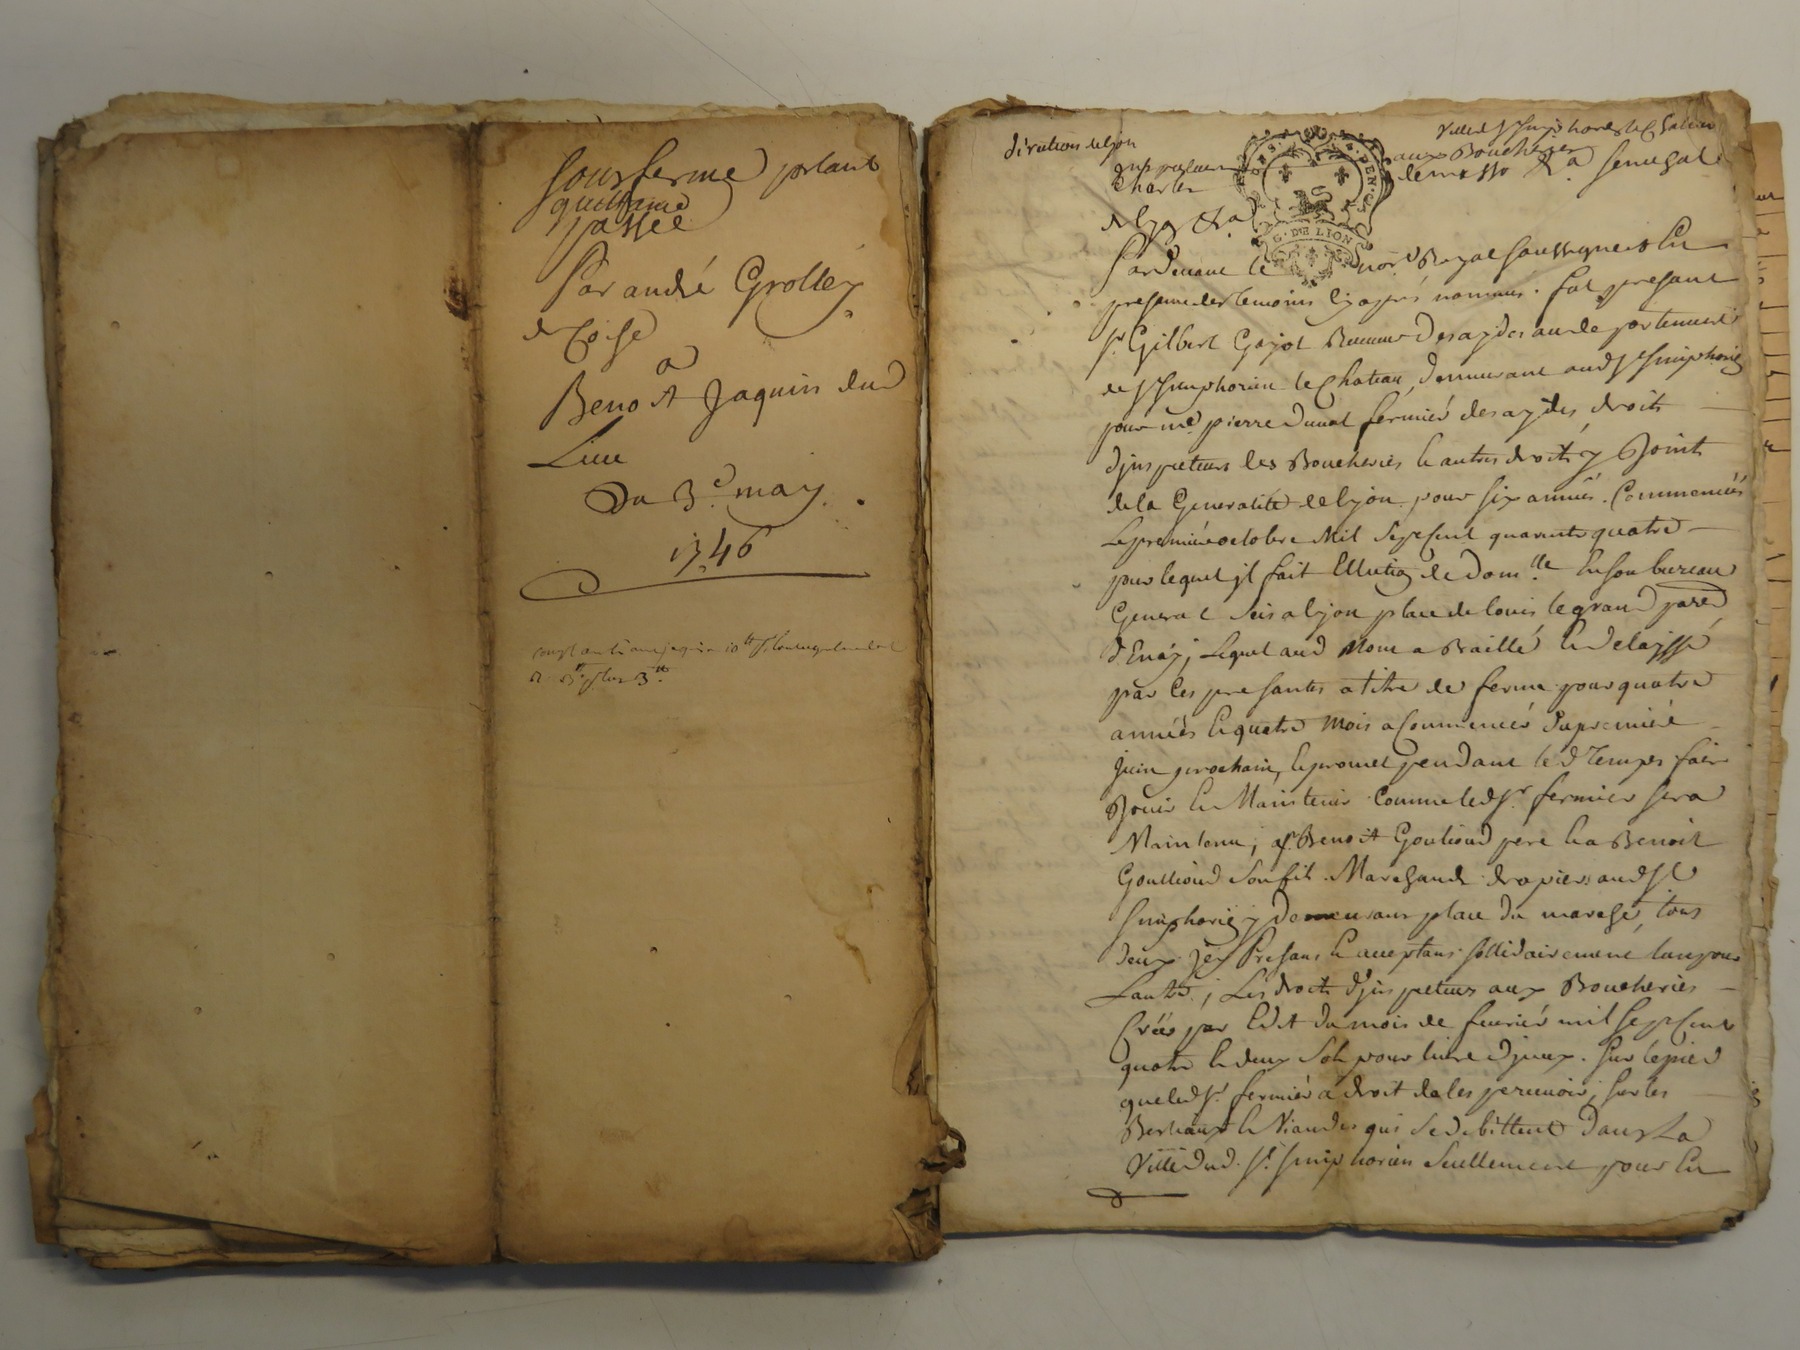 Sousferme portant
quittance
passée
Par andré Grolley
de Coise
a
Benoit Jaquin dud
Lieu
Du 3e. may.
1746
direction de lyon
Ville de st simphorien le Chateau
aux Boucheries
Par Devant le nore. Royal soussigné & En
presance des temoins cy apres nommés. fut presant
sr. Gilbert Gayot Receveur Des aydes au departement
de st simphorien le Chateau, demeurant aud st simphorien
pour me. pierre Duval fermier des aydes, droits
d'jnspecteurs les Boucheries & autres droits y Joints
de la Generalité de lyon, pour six années. Commencées
Le premier octobre Mil sept Cent quarante quatre
pour lequel jl fait Election de Domlle. En son bureau
General sis a lyon place de louis le grand paroisse
d'Enay; Lequel aud Nom a Baillé & delayssé
par Ces presantes a titre de ferme pour quatre
années & quatre Mois a Commencer du premier
Juin prochain, & promet pendant led Temps faire
Jouir & Maintenir Comme led sr. fermier sera
Maintenu; a sr. Benoit Goutioud pere & a Benoit
Goutioud son fils Marchands drapiers aud st
simphorien y Demeurans place du marché, tous
deux jcy Presans & acceptans sollidairement lun pour
Lautre; Les droits d'jnspecteurs aux Boucheries
Créés par Edit du mois de fevrier mil sept Cent
quatre & deux sols pour livre d'jceux. sur le pied
que led sr. fermier a droit de les percevoir, sur les
Bestiaux & Viandes qui se debittent dans La
Ville dud. st. simphorien seullement pour En
G. DE LION